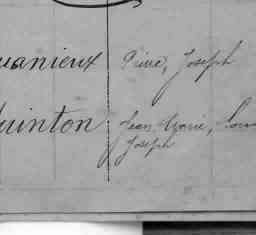 uanieux Pierre, Joseph
uinton Jean Marie, Lou
Joseph